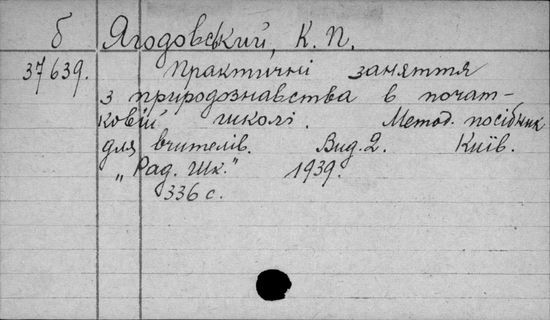 б Ягодовський, К. П.
37639. Практичні заняття
з природознавства в почат-
ковій школі. Метод. посібник
для вчителів. Вид. 2. Київ.
„Рад. шк." 1939.
336 с.